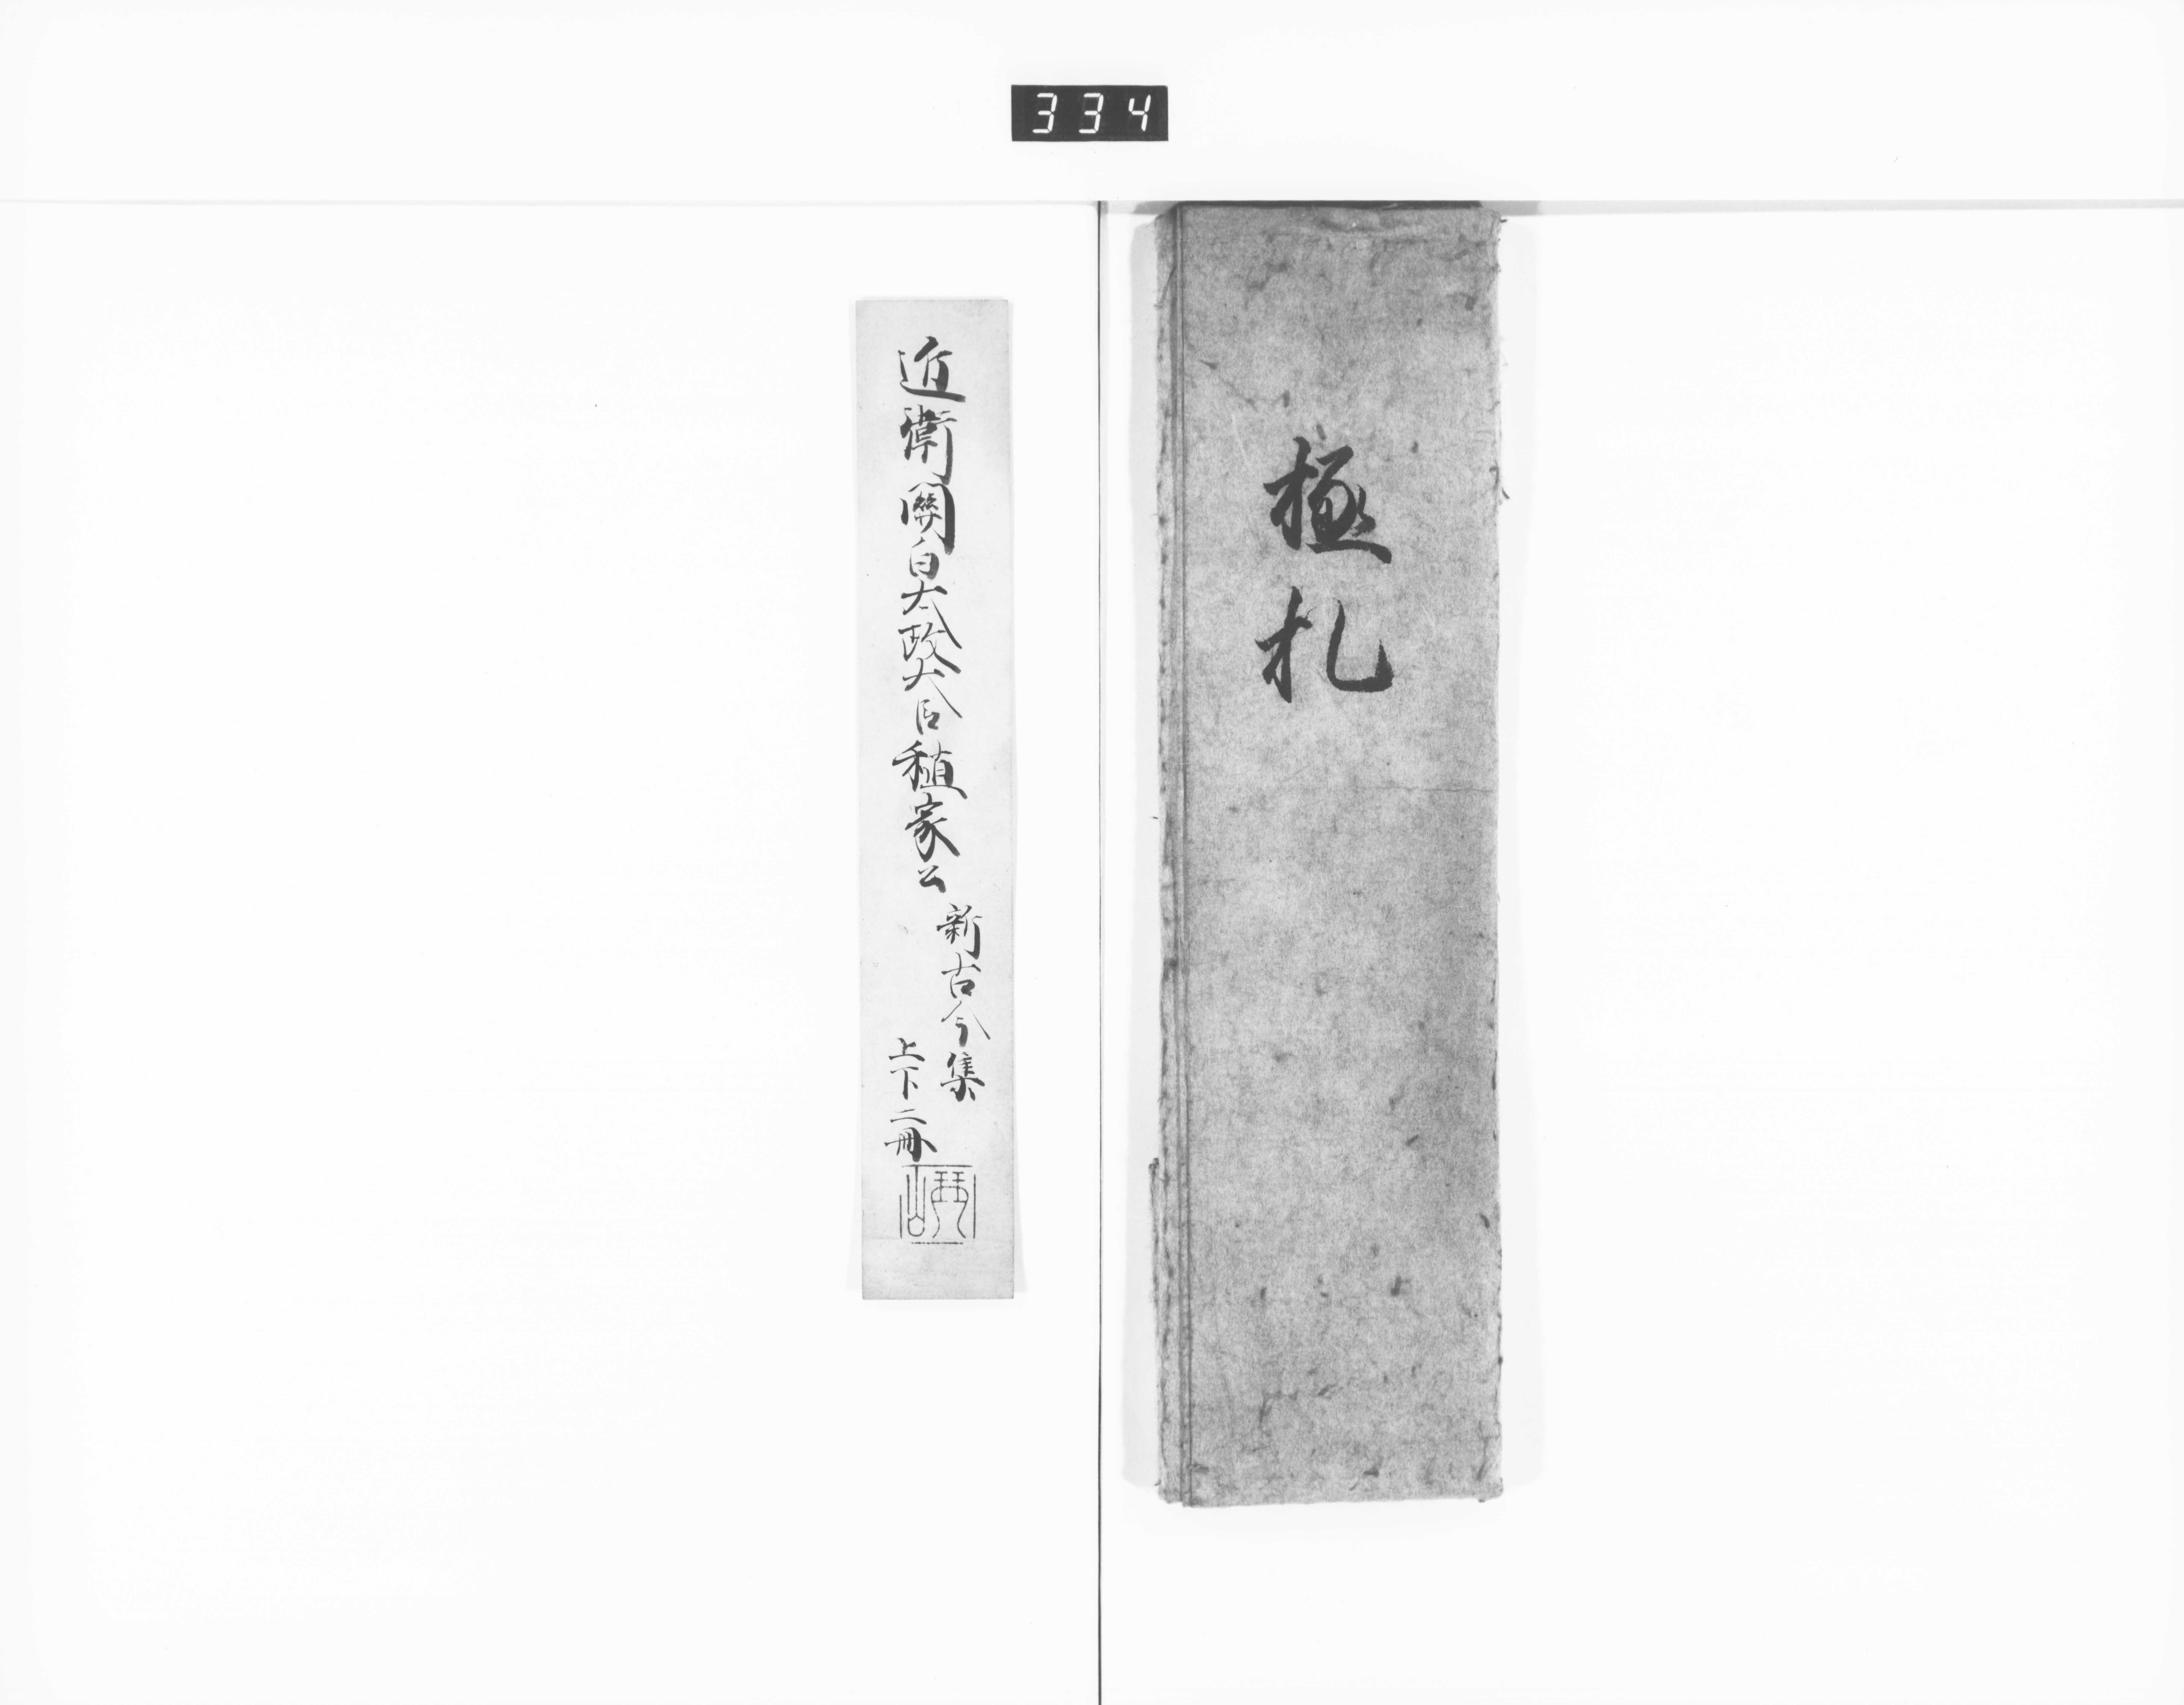 334
極札
近衛關白太政大臣稙家公
新古今集
上下二冊
琴山